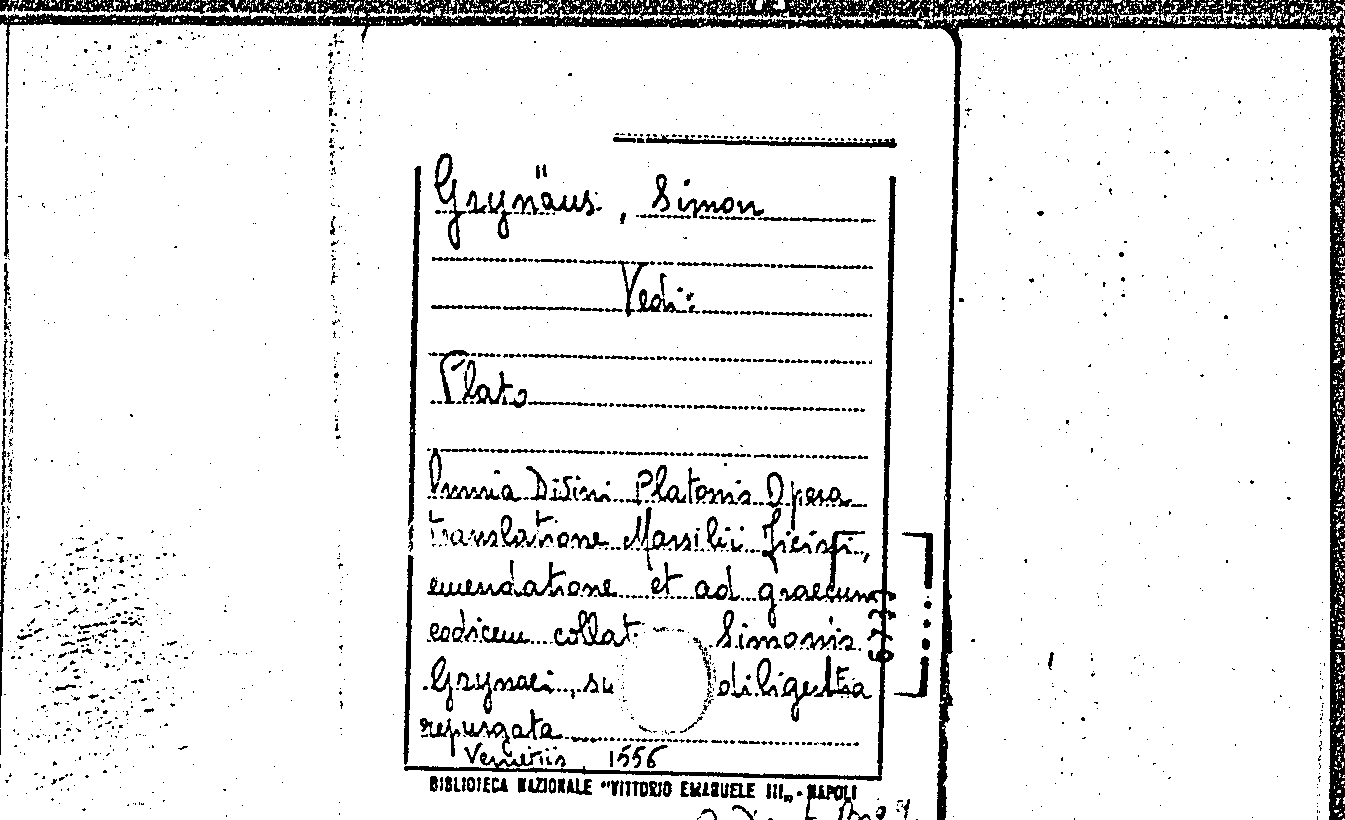 Grynäus, Simon
Vedi:
Plato
Omnia Divini Platonis Opera
translatione Marsilii Ficini,
emendatione et ad graecum
codicem collat
Simonis
Grynaei, su
diligentia
repurgata
Venetiis, 1556
BIBLIOTECA NAZIONALE "VITTORIO EMANUELE III„ - NAPOLI